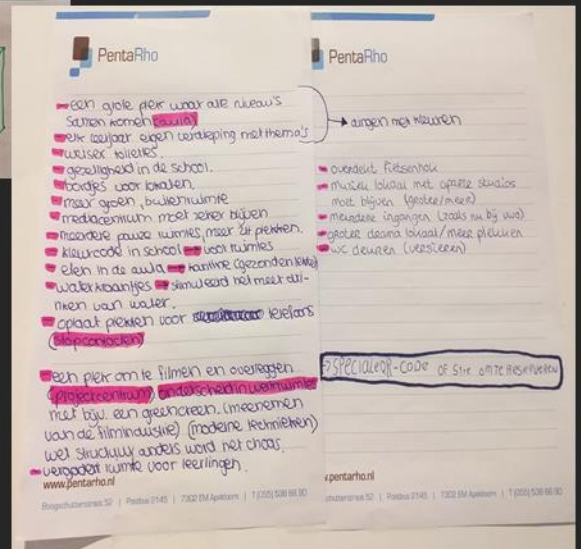 PentaRho
- een grote plek waar alle niveau's
samen komen (aula)
- elk leerjaar eigen verdieping met thema's
- toiletten.
- gezelligheid in de school.
- bordjes voor lokalen.
- meer groen, buitenruimte
- mediacentrum moet zeker blijven
- meerdere pauze ruimtes, meer zit plekken.
- kleurcode in school → voor ruimtes
- eten in de aula → kantine (gezonden
- waterkraantjes → stimuleerd het meer dri-
nken van water.
- oplaat plekken voor telefoons
(stopcontacten)
- een plek om te filmen en overleggen
(projectcentrum) onderscheid in werkruimtes
met bijv. een greenscreen. (meenemen
van de filmindustrie) (moderne technieken)
wel structuur anders word het chaos.
- vergader ruimte voor leerlingen.
www.pentarho.nl
Boogschutterstraat 52 | Postbus 2145 | 7302 EM Apeldoorn | T (055) 538 66 90
PentaRho
→ dingen met kleuren
- overdekt fietsenhok
- muziek lokaal met aparte studios
moet blijven (groter/meer)
- meerdere ingangen (zoals nu bij vwo)
- groter drama lokaal/meer plekken
- wc deuren (versieren)
→ speciale QR-code of site om te reserveren
pentarho.nl
schutterstraat 52 | Postbus 2145 | 7302 EM Apeldoorn | T (055) 538 66 90